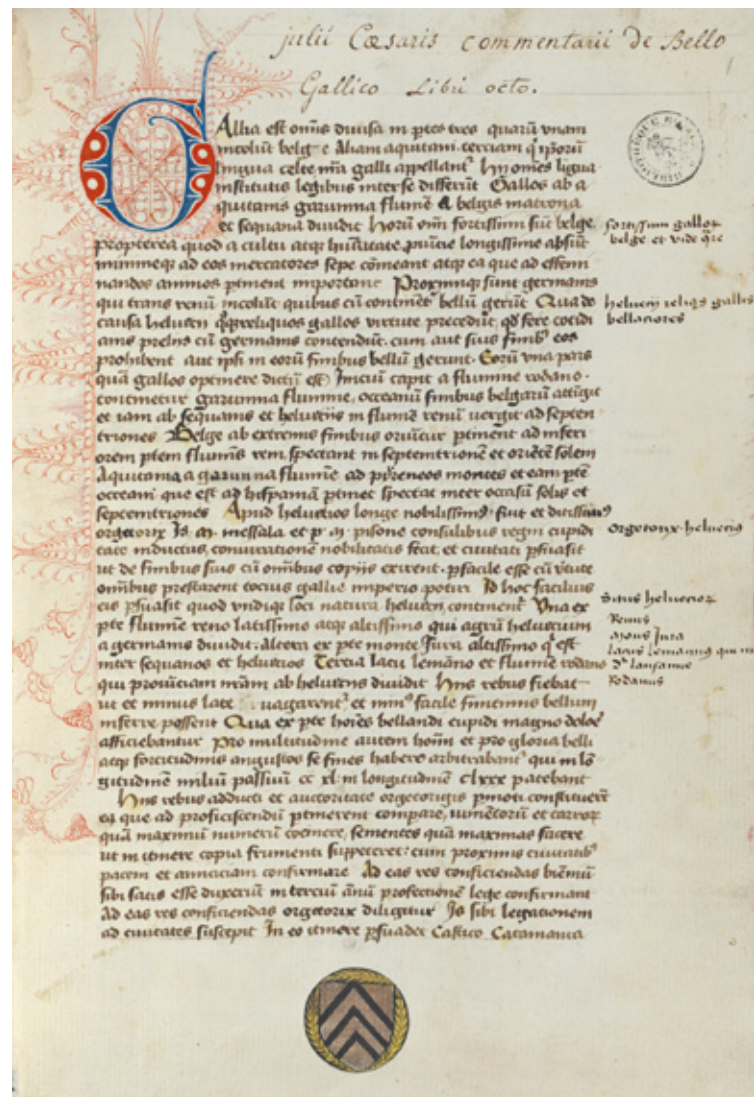 julii Cæsaris commentarii de Bello
Gallico Libri octo.
1
GAllia est om̄is diuisa in p̄tes tres quarū vnam
incolūt belg e Aliam aquitani. terciam qͥ ip̄orū
lingua celte nr̄a galli appellant᷑ Hij om̄es ligua
institutis legibus inter se differūt Gallos ab a
quitanis garunna flumē A belgis matrona
et sequana diuidit Horū om̄ fortissimi sūt belge
propterea quod a cultu atqꝫ hūanitate puīcie longissime absūt
minimeqꝫ ad eos mercatores sepe cōmeant atqꝫ ea que ad effemi
nandos animos ptinent important Proximiqꝫ sunt germanis
qui trans renū incolūt quibus cū continēt᷑ bellū gerūt Qua de
causa heluecij qͦqꝫ reliquos gallos virtute precedūt, qd fere cotidi
anis prelijs cū germanis contendūt. cum aut suis finibꝰ eos
prohibent aut ipsi in eorū finibus bellū gerunt. Eorū vna pars
quā gallos optinere dictū est Iniciū capit a flumine rodano.
continetur garunna flumine, occeanū finibus belgarū attīgit
et iam ab sequanis et heluecijs in flumē renū uergit ad septen
triones Belge ab extremis finibus oriūtur ptinent ad inferi
orem ptem fluminis reni spectant in septemtrionē et oriētē solem
Aquitania a garunna flumīe ad pireneos montes et eam ptē
oceani que est ad hispaniā ptinet spectat inter occasū solis et
septemtriones Apud heluetios longe nobilissimꝰ fuit et ditissimꝰ
orgetorix Is .m. messala et p. m. pisone consulibus regni cupidi
tate inductus, coniurationē nobilitatis fecit, et ciuitati psuasit
ut de finibus suis cū omnibus copijs exirent. pfacile esse cū v̄tute
omībus prestarent tocius gallie imperio potiri Id hoc facilius
eis psuasit quod vndiqꝫ loci natura heluecij continent᷑ Vna ex
pte flumīe reno latissimo atqꝫ altissimo qui agrū heluecium
a germanis diuidit. altera ex pte monte Iura altissimo qͥ est
inter sequanos et heluetios Tercia lacu lemāno et flumīe rodano
qui prouīciam nr̄am ab heluecijs diuidit Hijs rebus fiebat
ut et minus late uagarent᷑ et minꝰ facile finitimis bellum
inferre possent Qua ex pte hoīes bellandi cupidi magno dolor̄e
afficiebantur Pro multitudine autem hoīm et pro gloria belli
atqꝫ fortitudinis angustos se fines habere arbitrabant᷑ qui in lō
gitudinē miliū passuū cc xl. in longitudinē clxxx patebant
Hijs rebus adducti et auctoritate orgetorigis pmoti constituerūt
ea que ad proficiscendū ptinerent compare, iumētorū et carror̄ꝫ
quā maximū numerū coemere, sementes quā maximas facere
ut in itinere copia frumenti suppeteret: cum proximis ciuitatibꝰ
pacem et amiciciam confirmare Ad eas res conficiendas biēniū
sibi satis esse duxerūt in terciū ānū profectionē lege confirmant
Ad eas res conficiendas orgetorix diligitur Is sibi legationem
ad ciuitates suscepit In eo itinere psuadet Castico Catamanta
fortissimi gallorꝫ
belge et vide qͣre
heluecij reliqͦs gallis
bellaciores
orgetorix heluecijꝰ
Situs hel⁠ueciorꝫ
Renus
mons Jura
lacus lemannꝰ qui
Rodanus